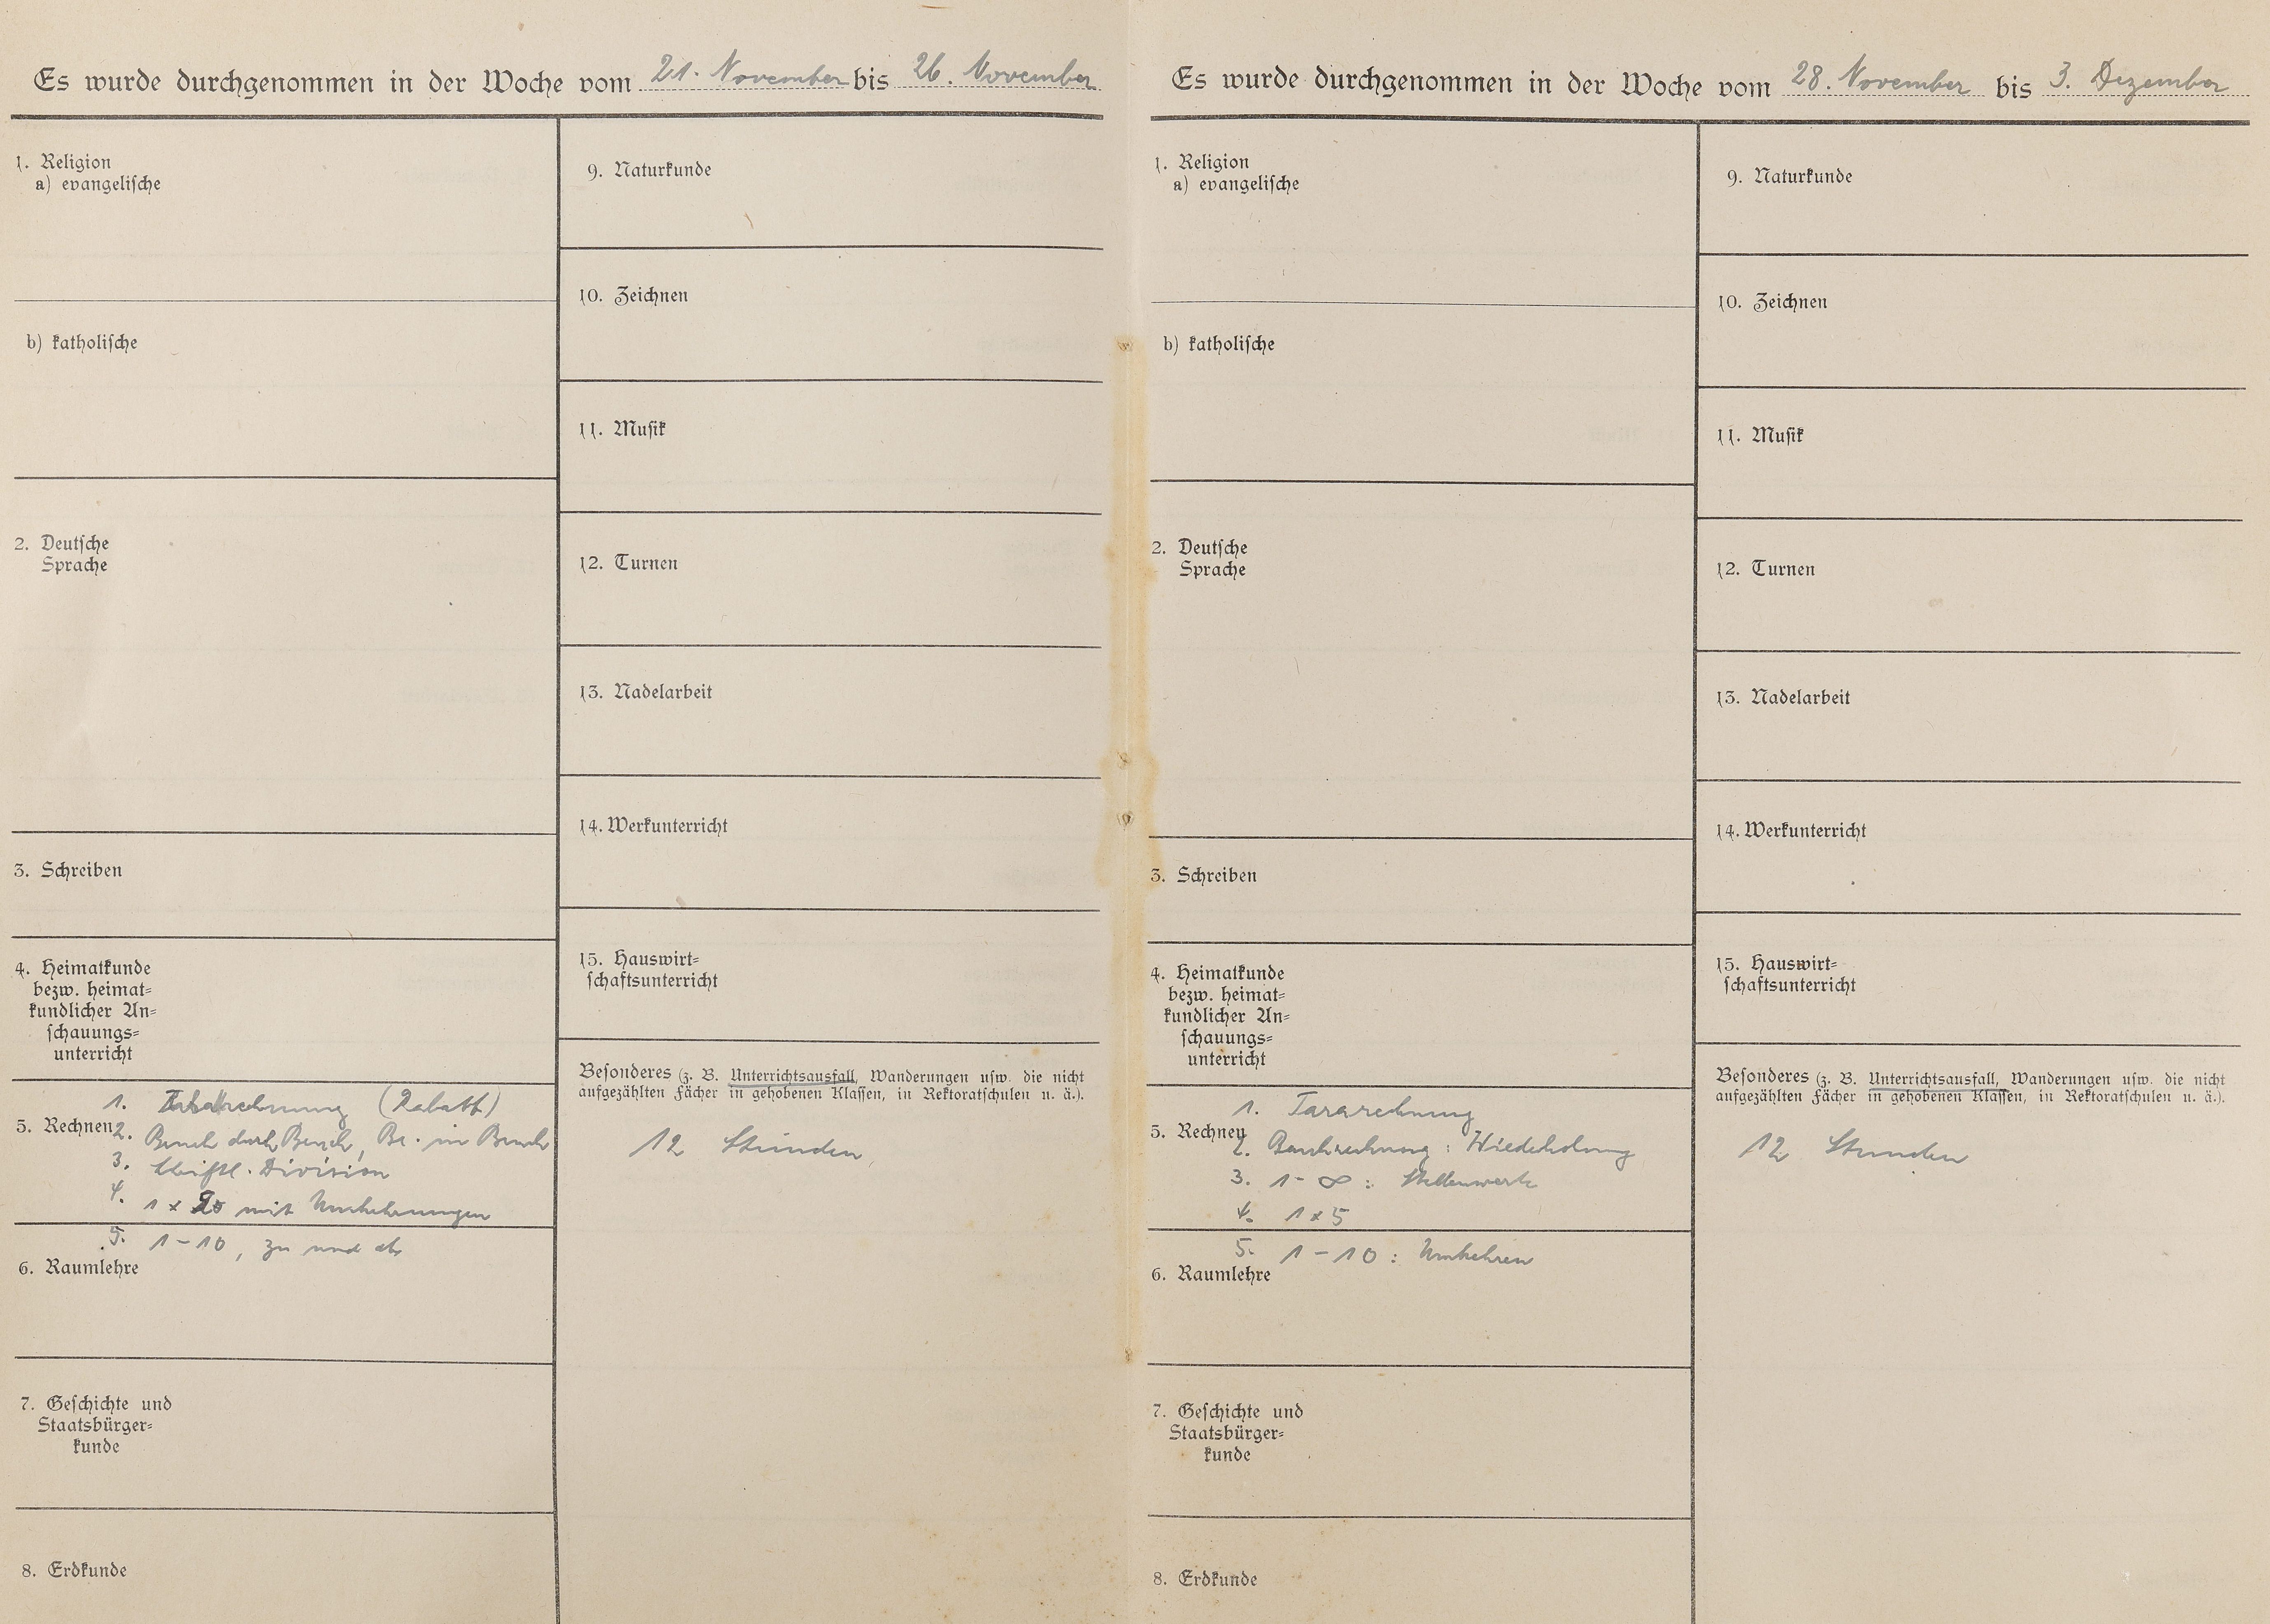 Es wurde durchgenommen in der Woche vom 21. November bis 26. November
1. Religion
a) evangeliſche
b) katholiſche
2. Deutſche
Sprache
3. Schreiben
4. Heimatkunde
bezw. heimat=
kundlicher An=
ſchauungs=
unterricht
1. (Rabatt)
5. Rechnen 2. Bruch durch Bruch, Br. in Bruch
3. Schriftl. Division
4. 1 x 20 mit Umkehrungen
5. 1-10, zu und ab
6. Raumlehre
7. Geſchichte und
Staatsbürger=
kunde
8. Erdkunde
9. Naturkunde
10. Zeichnen
11. Muſik
12. Turnen
13. Nadelarbeit
14. Werkunterricht
15. Hauswirt=
ſchaftsunterricht
Beſonderes (z. B. Unterrichtsausfall, Wanderungen uſw. die nicht
aufgezählten Fächer in gehobenen Klaſſen, in Rektoratſchulen u. ä.).
12 Stunden
Es wurde durchgenommen in der Woche vom 28. November bis 3. Dezember
1. Religion
a) evangeliſche
b) katholiſche
2. Deutſche
Sprache
3. Schreiben
4. Heimatkunde
bezw. heimat=
kundlicher An=
ſchauungs=
unterricht
1. Tararechnung
5. Rechnen 2. Bruchrechnung: Wiederholung
3. 1-∞: Stellenwerte
4. 1x5
5. 1-10: Umkehren
6. Raumlehre
7. Geſchichte und
Staatsbürger=
kunde
8. Erdkunde
9. Naturkunde
10. Zeichnen
11. Muſik
12. Turnen
13. Nadelarbeit
14. Werkunterricht
15. Hauswirt=
ſchaftsunterricht
Beſonderes (z. B. Unterrichtsausfall, Wanderungen uſw. die nicht
aufgezählten Fächer in gehobenen Klaſſen, in Rektoratſchulen u. ä.).
12 Stunden